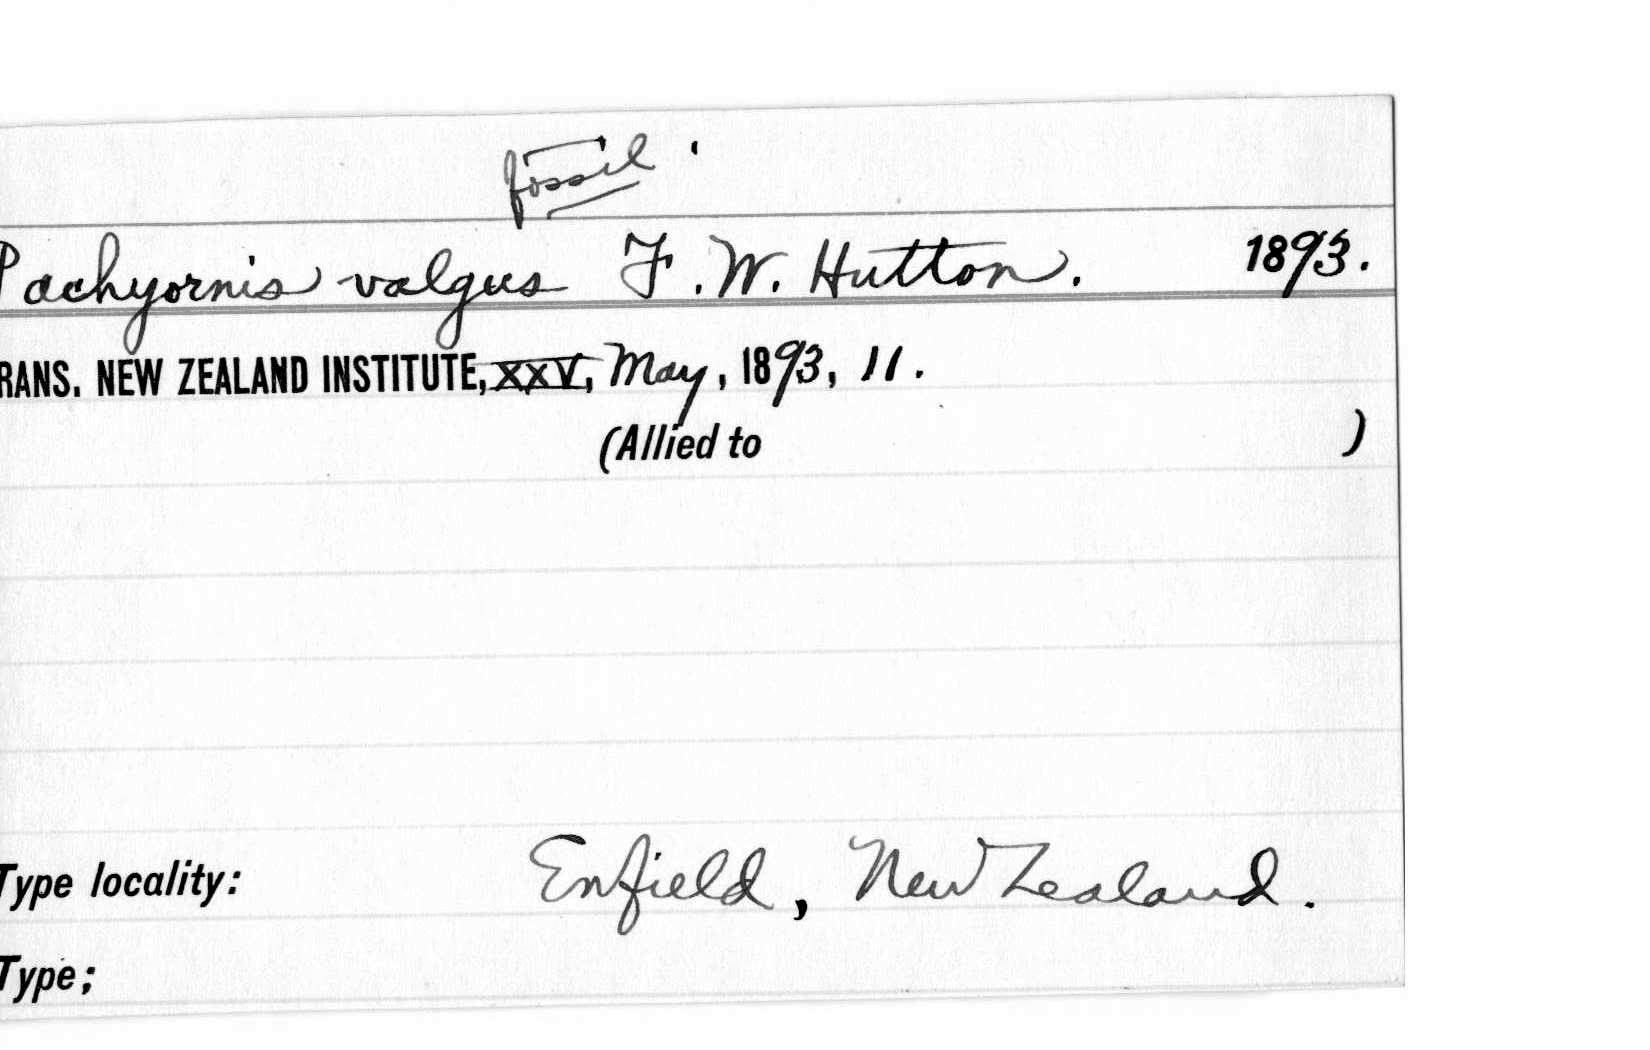 fossil.
Pachyornis valgus F. W. Hutton. 1893.
RANS. NEW ZEALAND INSTITUTE, XXV, May, 1893, 11.
(Allied to )
Type locality: Enfield, New Zealand.
Type;